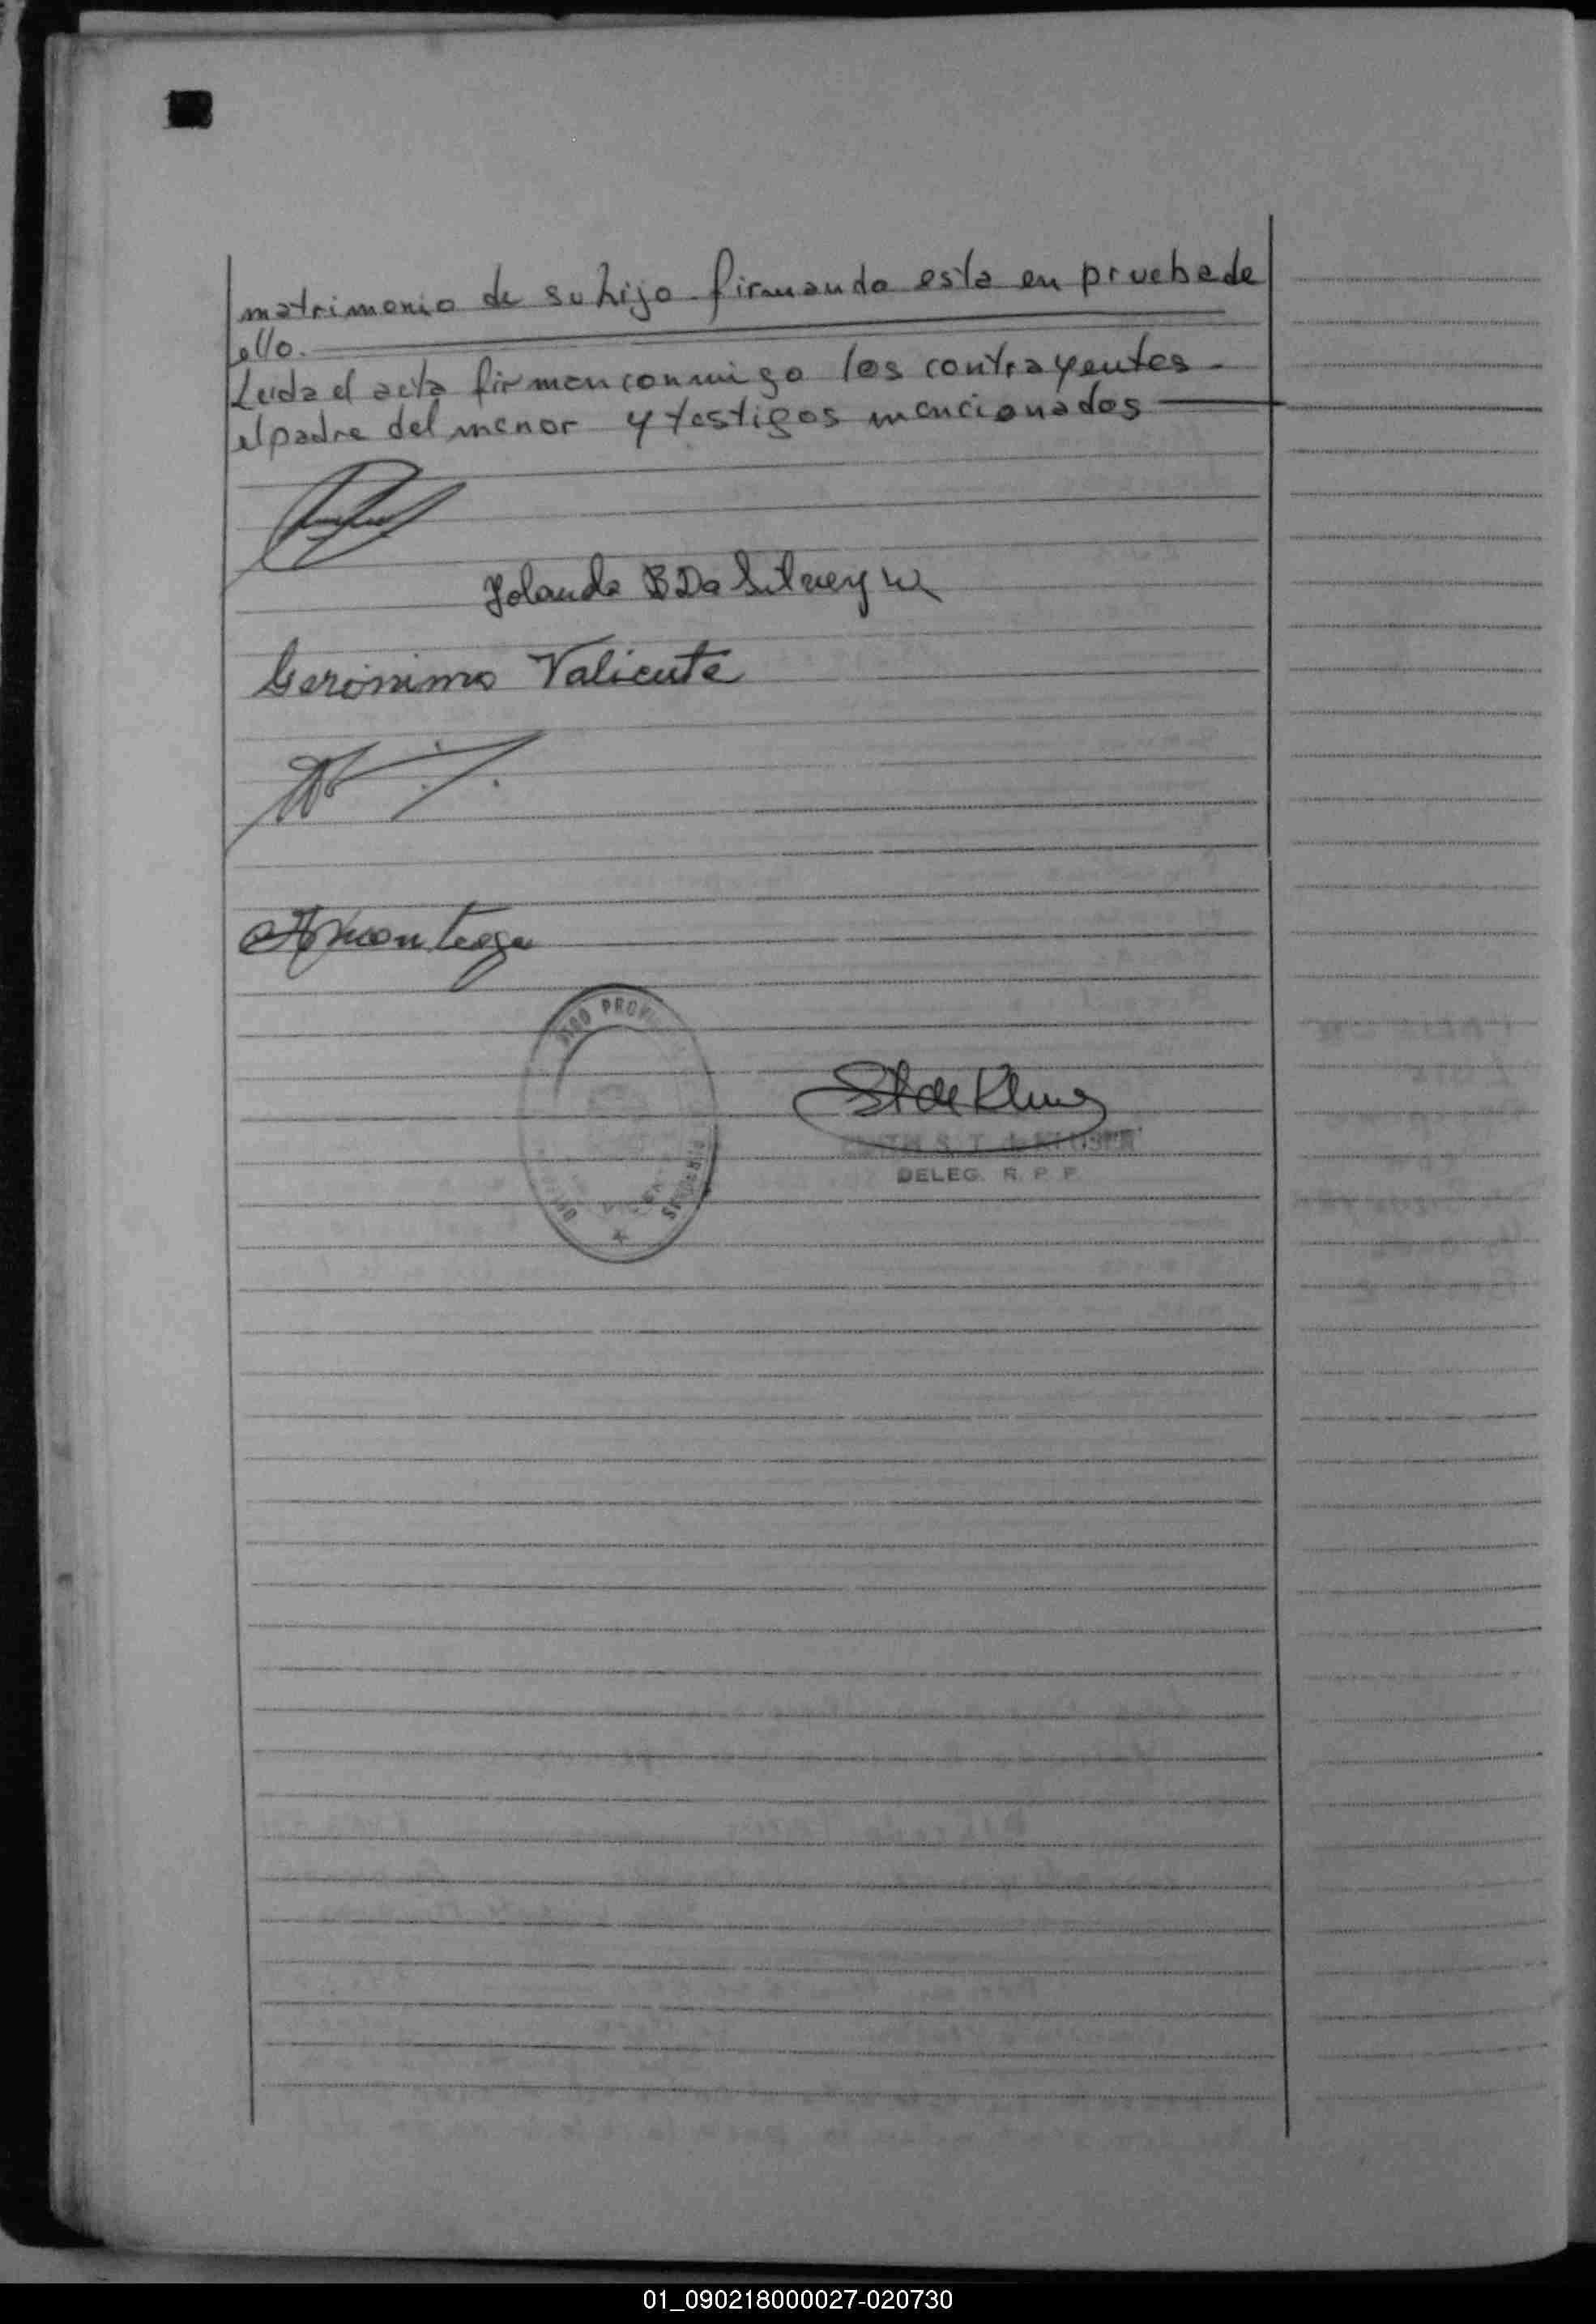 matrimonio de su hijo firmando esta en prueba de
ello.
Leida el acta firman conmigo los contrayentes -
el padre del menor y testigos mencionados
Yolanda B Da
Geronimo Valiente
PROVI
DELEG. R. P. P.
01_090218000027-020730